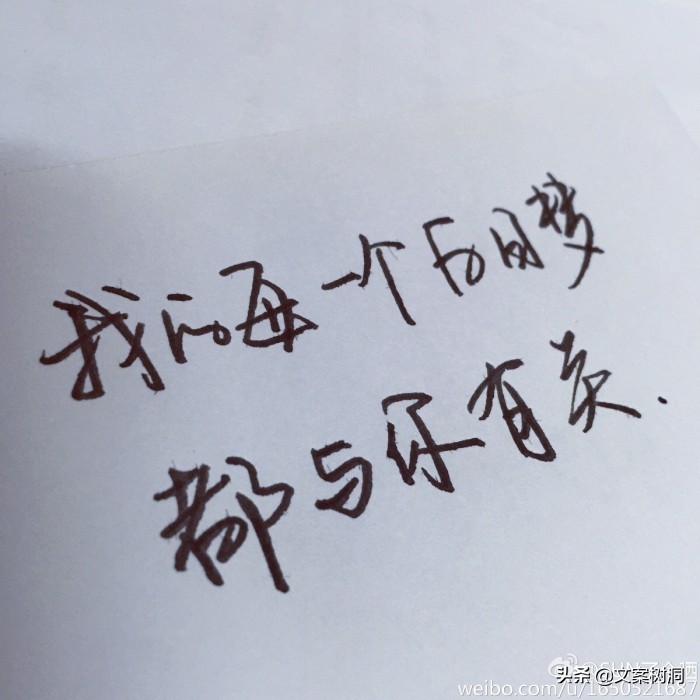 我的每一个白日梦
都与你有关.
头条 @文案树洞